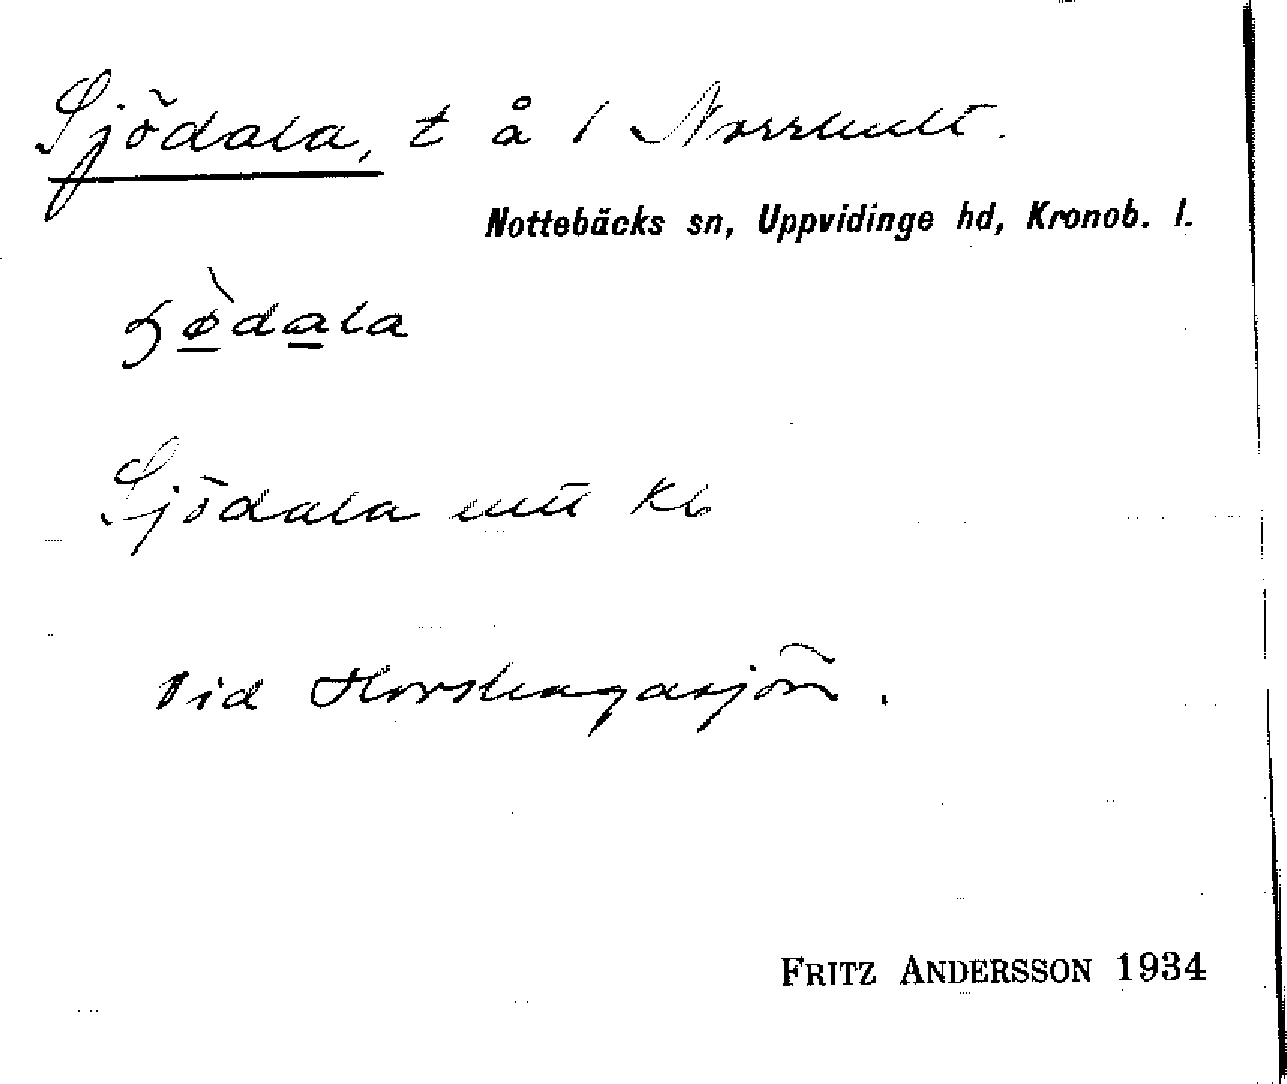 Sjödala, t å 1 Norrhult.
Nottebäcks sn, Uppvidinge hd, Kronob. l.
ɧødala
Sjödala utt Kb
Vid Horshagasjön.
FRITZ ANDERSSON 1934